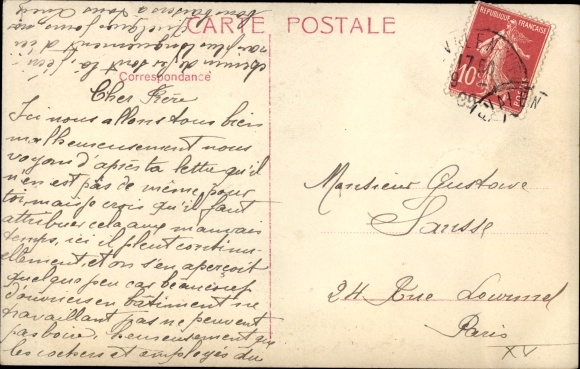 CARTE POSTALE
Correspondance
RÉPUBLIQUE FRANÇAISE
10
Cher Frère
Ici nous allons tous bien
malheureusement nous
voyons d'après ta lettre qu'il
n'en est pas de même pour
toi, mais je crois qu'il faut
attribuer cela aux mauvais
temps, ici il pleut continu-
ellement, et on s'en aperçoit
quelque peu car beaucoup
d'ouvriers en bâtiment ne
travaillant pas ne peuvent
pas boire, heureusement que
les cochers et employés du
chemin de fer sont là
Monsieur Gustave
Sausse
24 Rue Lourmel
Paris
XV